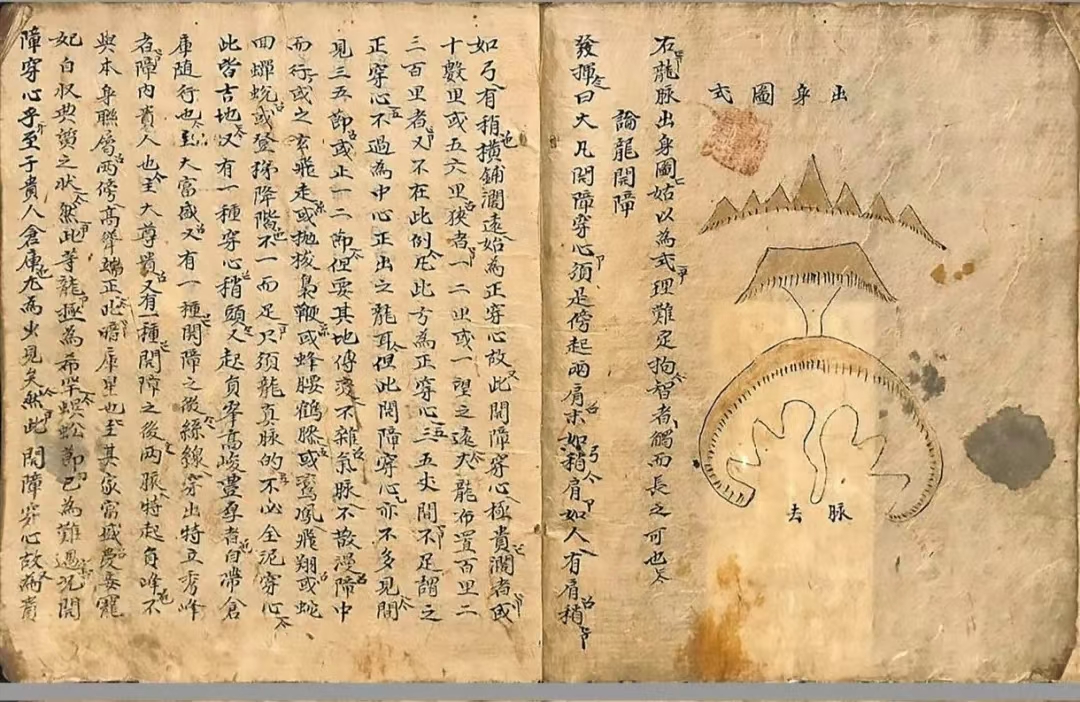 出身圖式
脉去
右龍脉出身圖姑以為式理難定拘智者觸而長之可也
論龍開障
發揮曰大凡開障穿心須是傍起兩肩末如稍肩如人有肩稍
如弓有稍橫鋪濶遠始為正穿心故此開障穿心極貴濶者或
十數里或五六里狹者一二里或一望之遠大龍布置百里二
三百里者又不在此例凡此方為正穿心三五丈間不足謂之
正穿心不過為中心正出之龍耳但此開障穿心亦不多見間
見三五節或止一二節但要其地傳變不雜氣脉不散漫障中
而行或之玄飛走或拋梭裊鞭或蜂腰鶴膝或鸞鳳飛翔或蛇
囬蟬蛻或登梯降階不一而足只須龍真脉的不必全泥穿心
此皆吉地又有一種穿心稍頭又起高峻豊厚者曰帶倉
庫隨行也主大富盛又有一種開障之後絲線穿出特立秀峰
者障內貴人也主大尊貴又有一種開障之後兩脉特起峰不
與本身聯屬兩傍高聳端正此庫星也至其家富盛受妾寵
妃白叔之狀然此等龍極為希罕蜈蚣節已為難遇况開
障穿心乎至于貴人倉庫尤為少見矣然此開障穿心故為貴